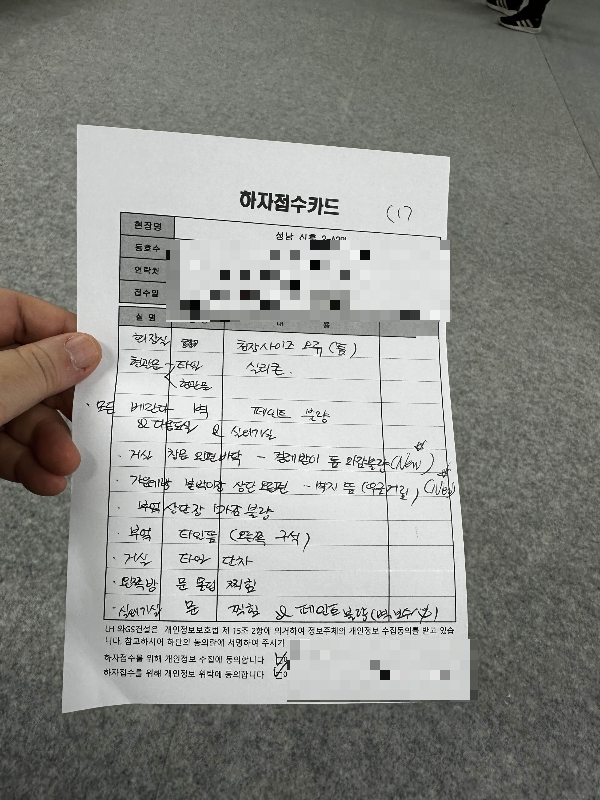 하자접수카드
(17
현장명
성남 신흥
동호수
연락처
접수일
실 명
내 용
화장실 천장사이즈 오류 (틈)
현관문 타일 실리콘.
현관문
· 모든 베란다 벽 페인트 불량
& 다용도실 & 실외기실
· 거실 창문 왼편 바닥 - 걸레받이 틈 마감불량 (New)
· 가운데방 붙박이장 상단 오른편 - 벽지 뜸 (New)
· 부엌 상단장 마감 불량
· 부엌 타일틈 (오른쪽 구석)
· 거실 타일 단차
· 왼쪽방 문 몰딩 찍힘
· 실외기실 문 찍힘 & 페인트 불량
LH 와GS건설은 개인정보보호법 제 15조 2항에 의거하여 정보주체의 개인정보 수집동의를 받고 있습
니다. 참고하시어 하단의 동의란에 서명하여 주시기
하자접수를 위해 개인정보 수집에 동의합니다
하자접수를 위해 개인정보 위탁에 동의합니다